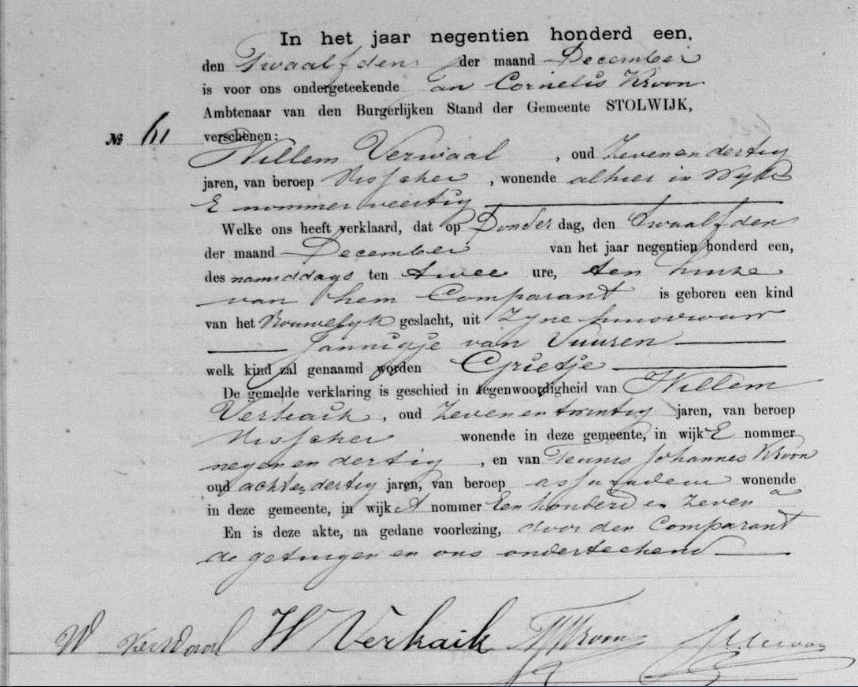 In het jaar negentien honderd een,
den Twaalfden der maand December
is voor ons ondergeteekende an Cornelis Kroon
Ambtenaar van den Burgerlijken Stand der Gemeente STOLWIJK,
№ 61 verschenen:
Willem Verwaal, oud Zevenendertig
jaren, van beroep Visscher, wonende alhier in Wijk
E nommer veertig
Welke ons heeft verklaard, dat op Donderdag, den Twaalfden
der maand December van het jaar negentien honderd een,
des namiddags ten twee ure, ten huize
van hem Comparant is geboren een kind
van het Vrouwelijk geslacht, uit Zijne huisvrouw
Jannigje van Vuuren
welk kind zal genaamd worden Grietje
De gemelde verklaring is geschied in tegenwoordigheid van Willem
Verkaik, oud Zevenentwintig jaren, van beroep
Visscher wonende in deze gemeente, in wijk E nommer
negenendertig, en van Teunis Johannes Kroon
oud achtendertig jaren, van beroep wonende
in deze gemeente, in wijk A nommer Eenhonderd en Zeven
En is deze akte, na gedane voorlezing, door den Comparant
de getuigen en ons onderteekend
W Verwaal W Verkaik Kroon